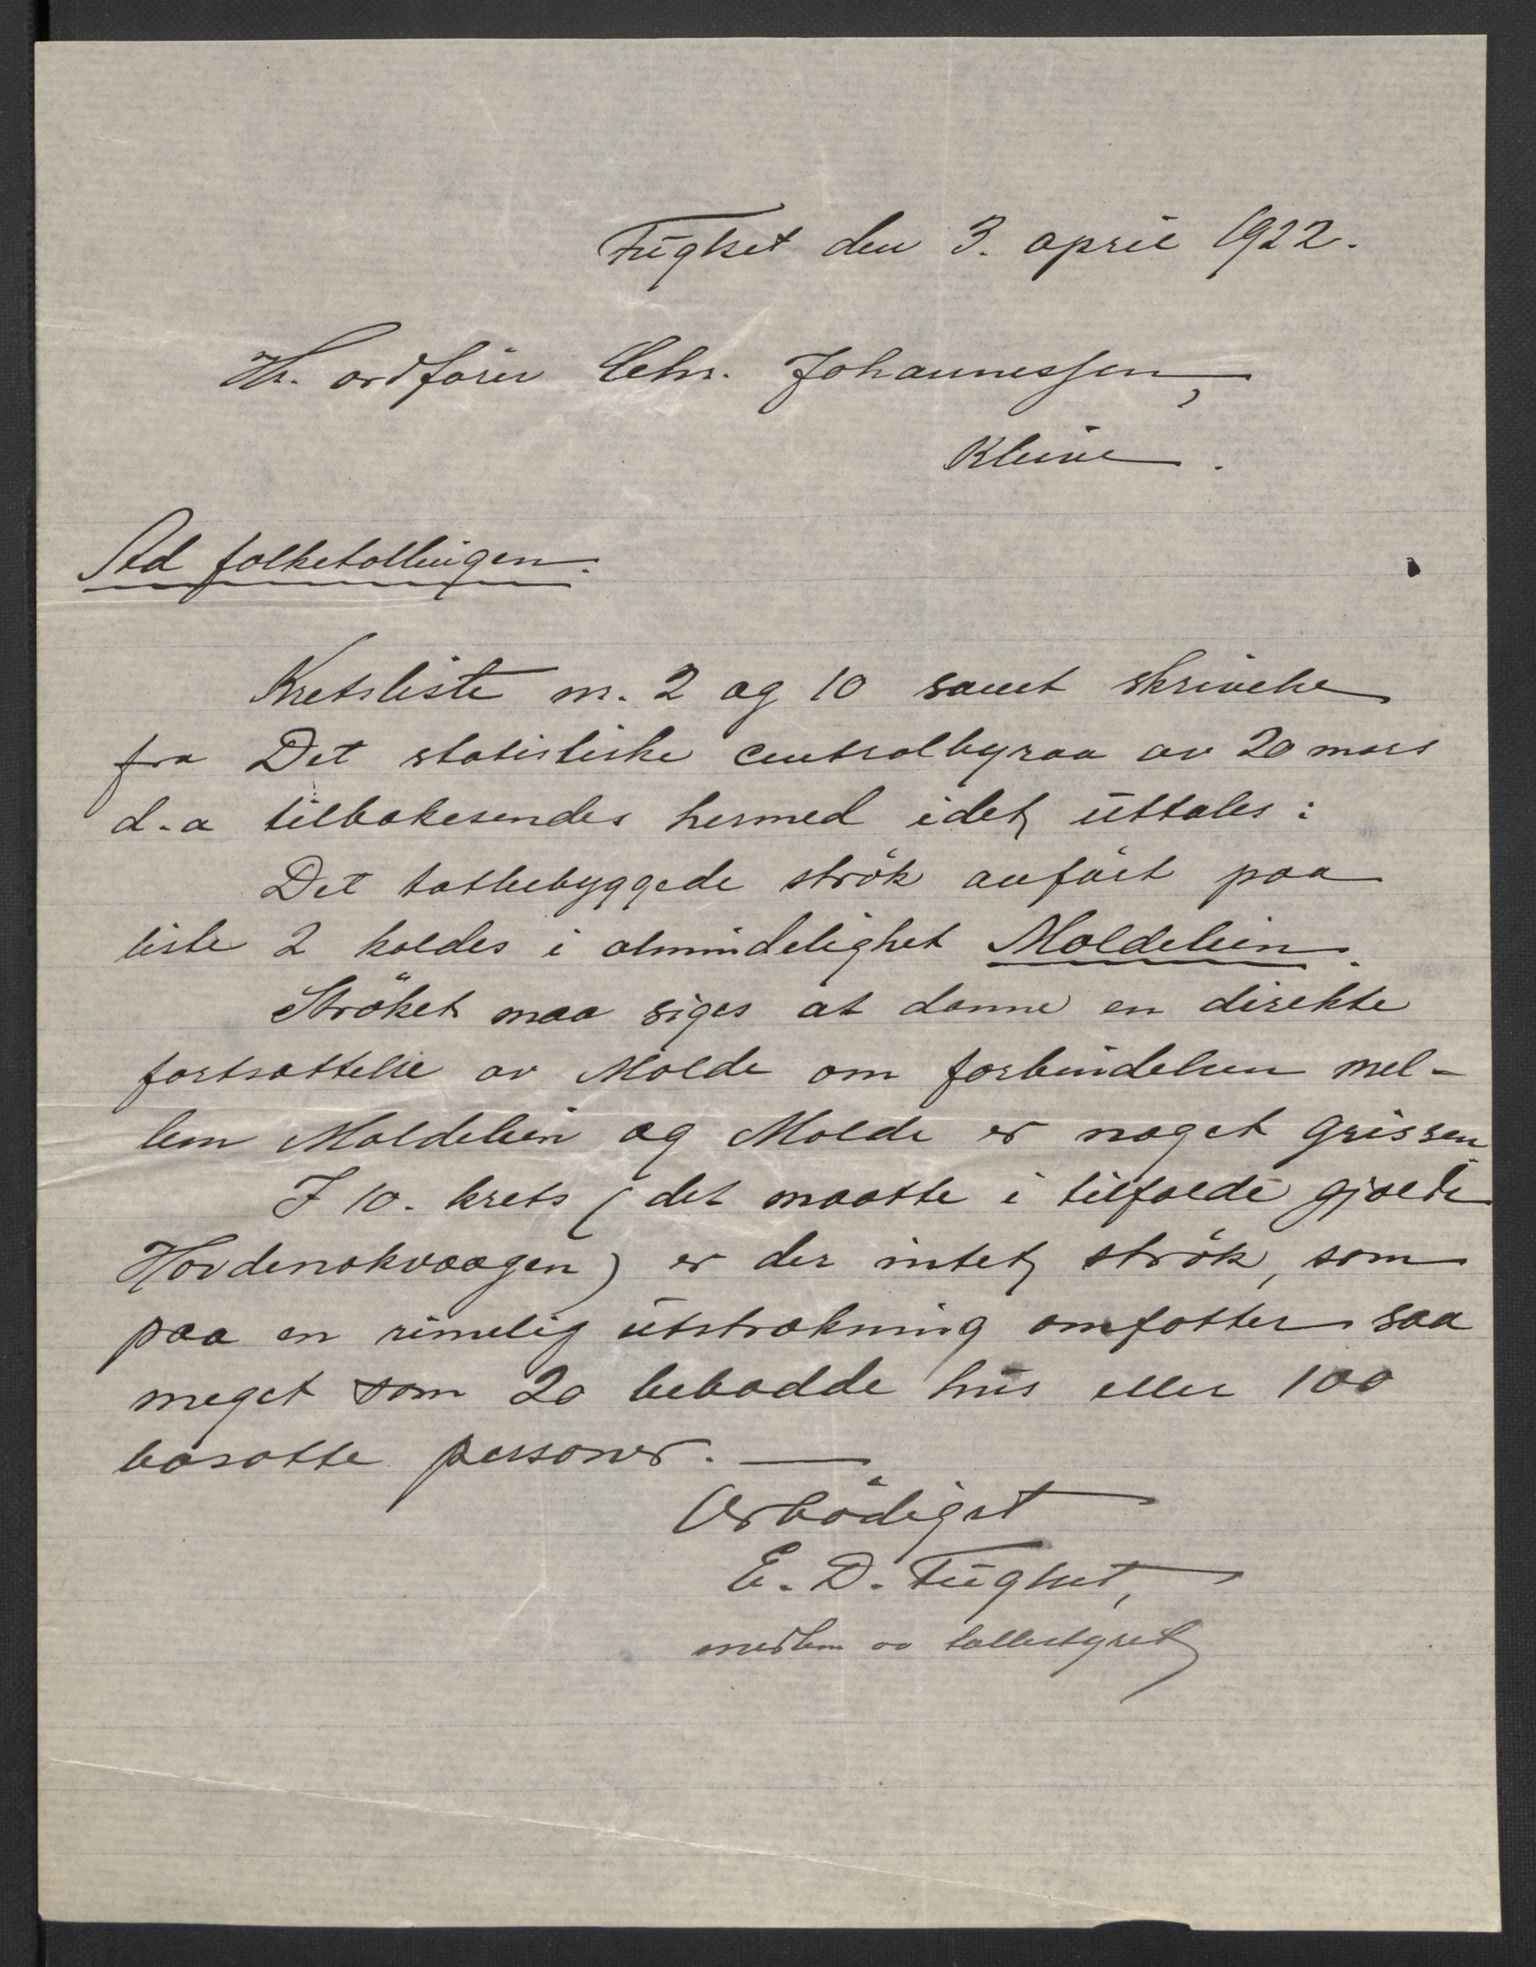 Fugset den 3. april 1922.
Hr. ordfører Chr. Johannessen,
Kleive.
Ad folketællingen.
Kretsliste nr. 2 og 10 samt skrivelse
fra Det statistiske centralbyraa av 20 mars
d.a tilbakesendes hermed idet uttales:
Det tætbebyggede strök anfört paa
liste 2 kaldes i almindelighet Moldelien.
Ströket maa siges at danne en direkte
fortsættelse av Molde om forbindelsen mel-
lem Moldelien og Molde er noget grissen.
I 10. krets (det maatte i tilfælde gjælde
Hovdenakvaagen) er der intet strök, som
paa en rimelig utstrækning omfatter saa
meget som 20 bebodde hus eller 100
bosatte personer. —
Ærbödigst
E. D. Fugset,
medlem av tællestyret